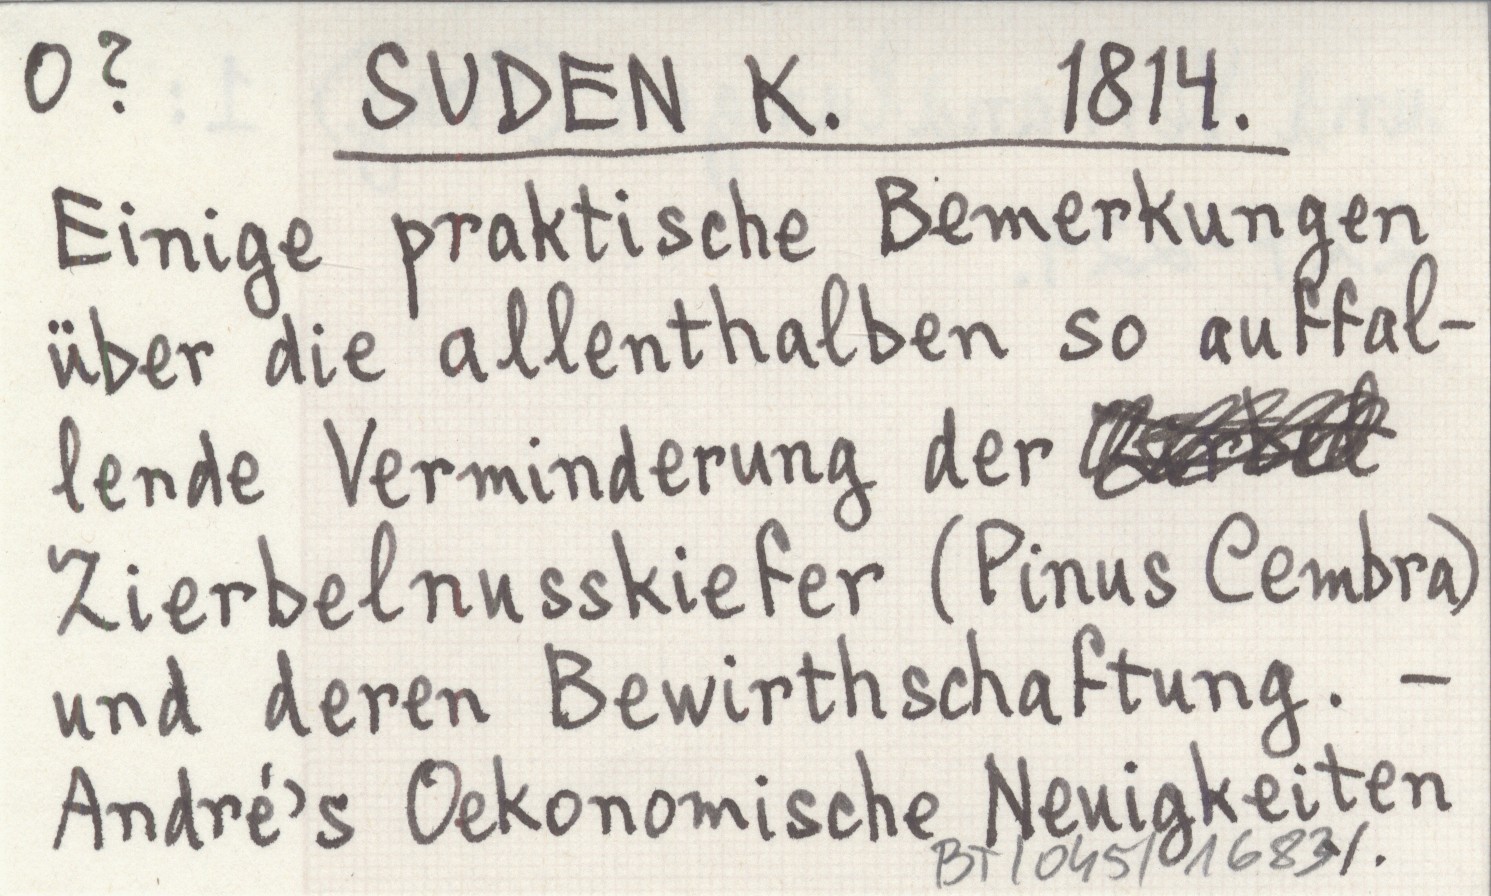 O? SUDEN K. 1814.
Einige praktische Bemerkungen
über die allenthalben so auffal-
lende Verminderung der
Zierbelnusskiefer (Pinus Cembra)
und deren Bewirthschaftung. -
André's Oekonomische Neuigkeiten
BT/045/1683/.